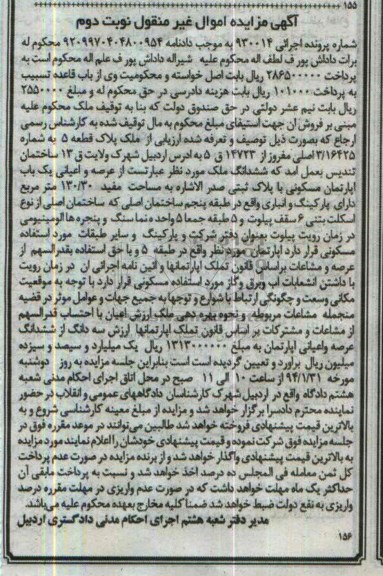 ۱۵۵
آگهی مزایده اموال غیر منقول نوبت دوم
شماره پرونده اجرائی ۹۳۰۰۱۴ به موجب دادنامه ۹۲۰۹۹۷۰۴۰۴۸۰۰۹۵۴ محکوم له
برات داداش پور ف لطف اله محکوم علیه شیراله داداش پور ف علم اله محکوم است به
پرداخت ۲۸۶۵۰۰۰۰۰ ریال بابت اصل خواسته و محکومیت وی از باب قاعده تسبیب
به پرداخت ۱۰۱۰۰۰ ریال بابت هزینه دادرسی در حق محکوم له و مبلغ ۲۵۵۰۰۰۰
ریال بابت نیم عشر دولتی در حق صندوق دولت که بنا به توقیف ملک محکوم علیه
مبنی بر فروش آن جهت استیفای مبلغ محکوم به مال توقیف شده به کارشناس رسمی
ارجاع که بصورت ذیل توصیف و تعرفه شده ارزیابی از ملک پلاک قطعه ۵ به شماره
۳/۱۶۴۲۵ اصلی مفروز از ۱۴۷۲۳ ق ۵ به آدرس اردبیل شهرک ولایت ق ۱۳ ساختمان
تندیس بعمل آمد که ششدانگ ملک مورد نظر عبارتست از عرصه و اعیانی یک باب
آپارتمان مسکونی با پلاک ثبتی صدر الاشاره به مساحت مفید ۱۳۰/۳۰ متر مربع
دارای پارکینگ و انباری واقع در طبقه پنجم ساختمان اصلی که ساختمان اصلی از نوع
اسکلت بتنی ۶ سقف پیلوت و ۵ طبقه جمعا ۵ واحده نما سنگ و پنجره ها آلومینیومی
در زمان رویت پیلوت بعنوان دفتر شرکت و پارکینگ و سایر طبقات مورد استفاده
مسکونی قرار دارد آپارتمان مورد نظر واقع در طبقه ۵ و با حق استفاده بقدرالسهم از
عرصه و مشاعات براساس قانون تملک آپارتمانها و آئین نامه اجرائی آن در زمان رویت
با داشتن انشعابات آب وبرق وگاز مورد استفاده مسکونی قرار دارد با توجه به موقعیت
مکانی وسعت و چگونگی ارتباط با شوارع و توجها به جمیع جهات و عوامل موثر در قضیه
منجمله مشاعات مربوطه و نحوه بهره دهی ملک ارزش اعیان با احتساب قدرالسهم
از مشاعات و مشترکات بر اساس قانون تملک آپارتمانها ارزش سه دانگ از ششدانگ
عرصه واعیانی آپارتمان به مبلغ ۱۳۱۳۰۰۰۰۰۰ ریال یک میلیارد و سیصد و سیزده
میلیون ریال برآورد و تعیین گردیده است است بنابراین جلسه مزایده به روز دوشنبه
مورخه ۹۴/۱/۳۱ از ساعت ۱۰ الی ۱۱ صبح در محل اتاق اجرای احکام مدنی شعبه
هشتم دادگاه واقع در اردبیل شهرک کارشناسان دادگاههای عمومی و انقلاب در حضور
نماینده محترم دادسرا برگزار خواهد شد و مزایده از مبلغ معینه کارشناسی شروع و به
بالاترین قیمت پیشنهادی فروخته خواهد شد طالبین می‌توانند در موعد مقرره فوق در
جلسه مزایده فوق شرکت نموده و قیمت پیشنهادی خودشان را اعلام نمایند مورد مزایده
به بالاترین قیمت پیشنهادی واگذار خواهد شد و از برنده مزایده در صورت عدم پرداخت
کل ثمن معامله فی المجلس ده درصد اخذ خواهد شد و نسبت به پرداخت مابقی آن
حداکثر یک ماه مهلت خواهد داشت که در صورت عدم واریزی در مهلت مقرره درصد
واریزی به نفع دولت ضبط خواهد شد ضمناً کلیه مخارج بعهده محکوم علیه می‌باشد.
مدیر دفتر شعبه هشتم اجرای احکام مدنی دادگستری اردبیل
۱۵۶